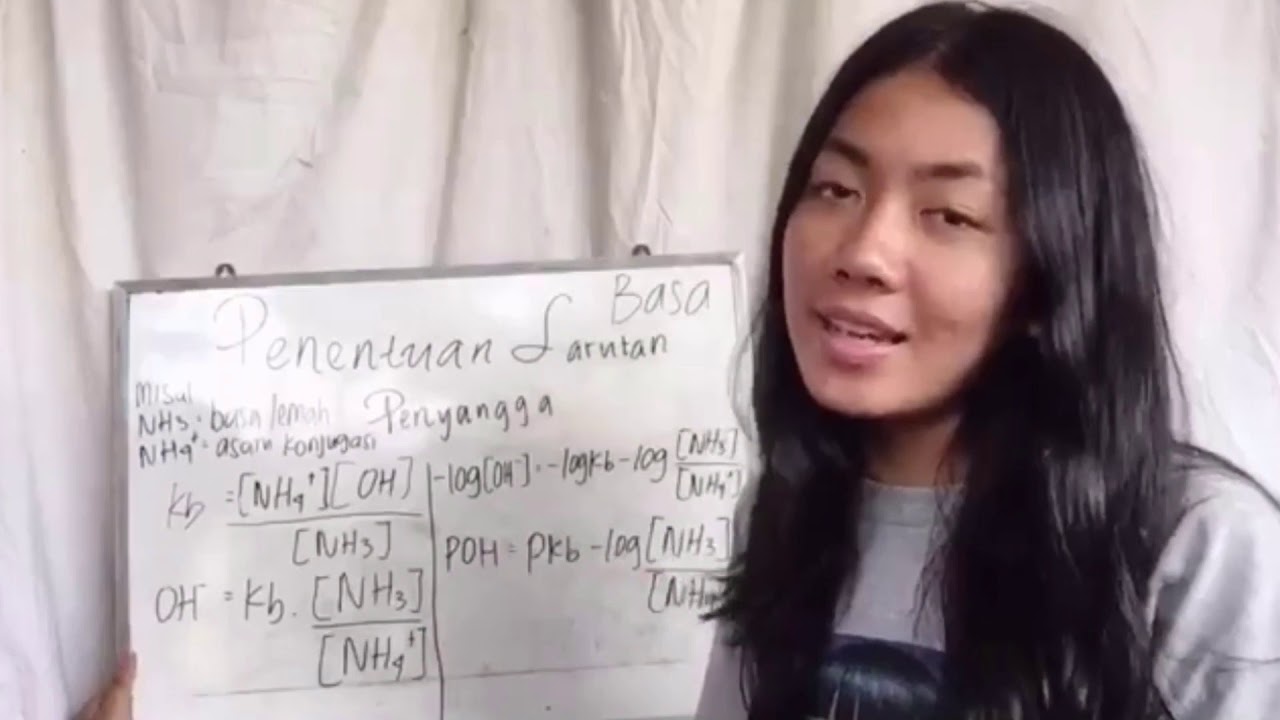 Basa
Penentuan Larutan
Penyangga
Misal
NH3 = basa lemah
NH4+ = asam konjugasi
Kb = [NH4+][OH]
[NH3]
OH- = Kb. [NH3]
[NH4+]
-log[OH-] = -logKb - log [NH3]
[NH4+]
POH = PKb - log [NH3]
[NH4